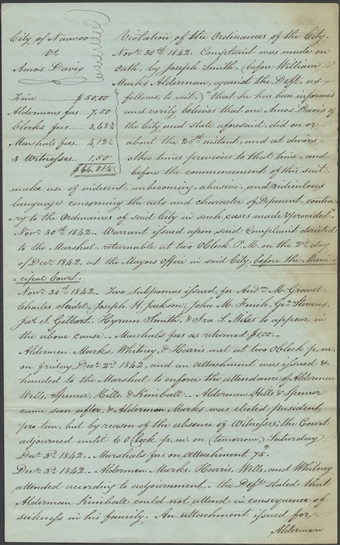 City of Nauvoo
vs
Amos Davis
Fine $50,00
Aldermans fees 7,50
Clerks fees 3,68¾
Marshals fees 4,12½
3 Witnesses 1.50
$66,81¼
Violation of the Ordinances of the City.
Novr. 30th 1842. Complaint was made on
oath, by Joseph Smith, (before William
Marks Alderman, against the Deft. as
follows, to wit,) "that he has been informed
and verily believes that one Amos Davis of
the City and state aforesaid, did on or
about the 25th instant, and at divers
other times previous to that time, and
before the commencement of this suit,
make use of indecent, unbecoming, abusive, and ridiculous
language concerning the acts and character of Deponent, contra-
ry to the Ordinances of said City in such cases made & provided."
Novr. 30th 1842. Warrant issued upon said Complaint directed
to the Marshal returnable at two O'clock P.M. on the 2d. day
of Decr. 1842, at the Mayors Office in said City, before the Muni-
cipal Court.
Novr. 30th 1842. Two subpoenas issued, for
Charles Joseph H. Jackson, John M. Finch, Stevens,
Gilbert, Hyrum Smith, & Ira S. Miles to appear in
the above cause. Marshals fees as returned $1.00.
Aldermen Marks, Whitney, & Harris met at two O'clock p.m.
on friday, Decr. 2d 1842, and an attachment was issued &
handed to the Marshal to enforce the attendance of Aldermen
Wells, Spencer, Hills & Kimball. Aldermen Hills & Spencer
came soon after, & Alderman Marks was elected president,
pro tem, but by reason of the absence of Witnesses, the Court
adjourned until 6 O'clock p.m. on (tomorrow) Saturday
Decr. 3d 1842. Marshals fees on Attachment 75
Decr. 3d 1842. Aldermen Marks, Harris, Wells, and Whitney
attended according to adjournment. the Deft. stated that
Alderman Kimball could not attend in consequence of
sickness in his family. An attachment issued for
Alderman